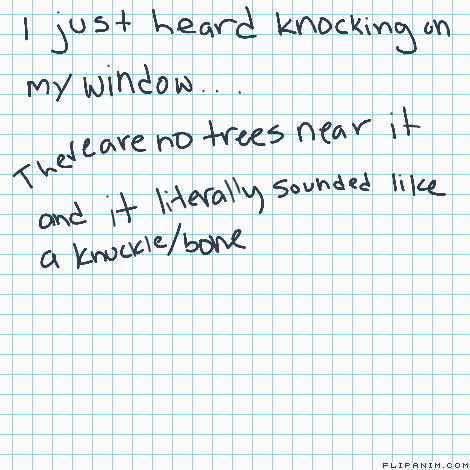 I just heard knocking on
my window...
There are no trees near it
and it literally sounded like
a knuckle/bone
FLIPANIM.COM